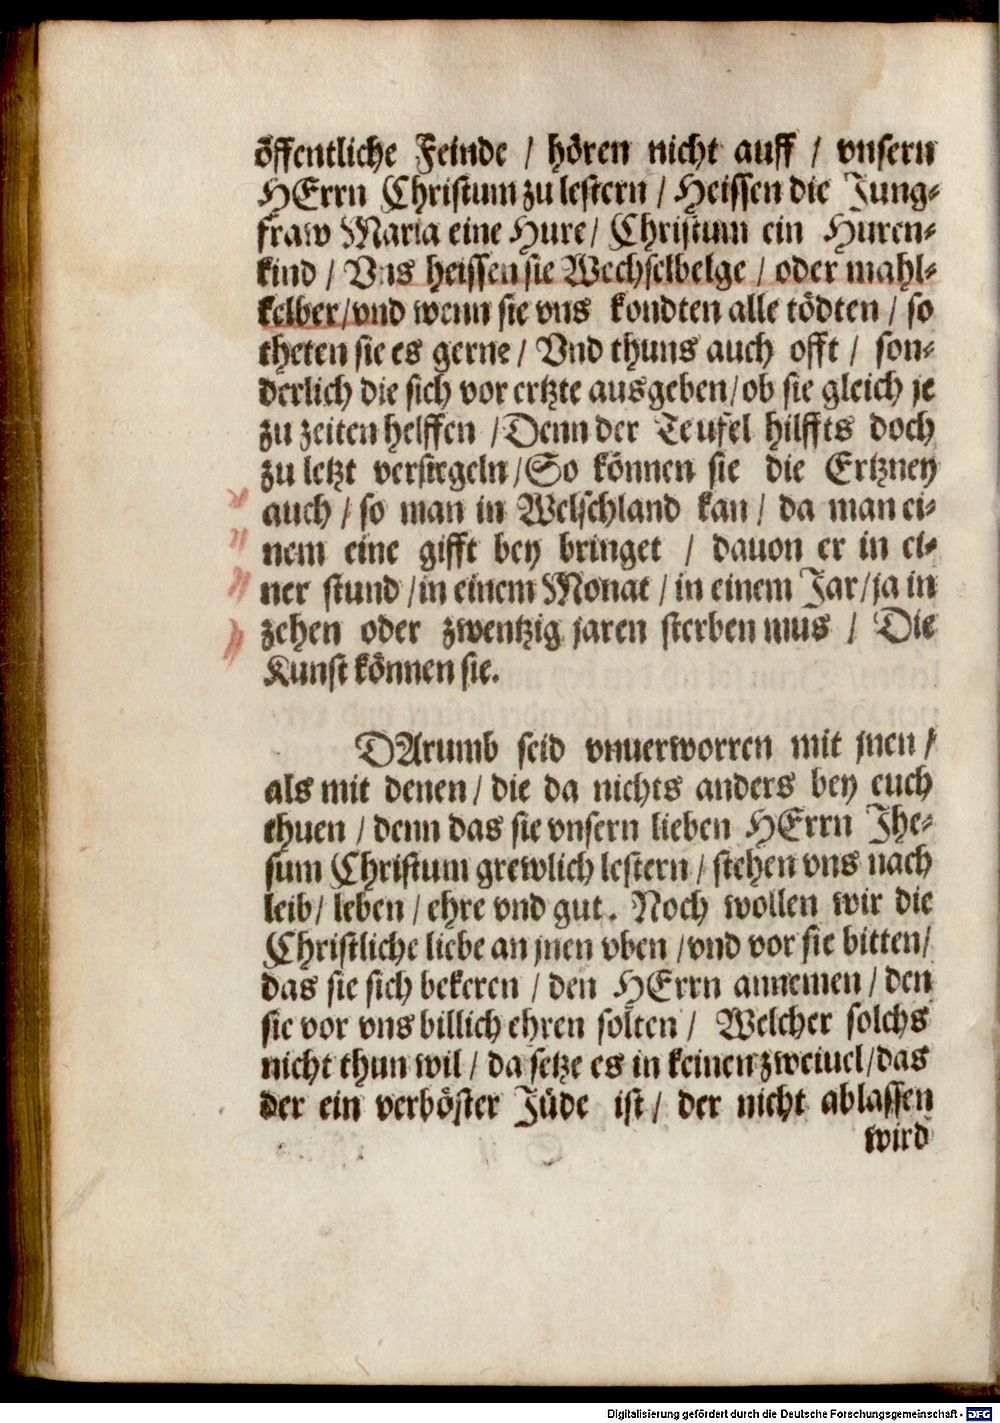 öffentliche Feinde / hören nicht auff / vnsern
HErrn Christum zu lestern / Heissen die Jung-
fraw Maria eine Hure / Christum ein Huren-
kind / Vns heissen sie Wechselbelge / oder mahl-
kelber / vnd wenn sie vns kondten alle tödten / so
theten sie es gerne / Vnd thuns auch offt / son-
derlich die sich vor ertzte ausgeben / ob sie gleich je
zu zeiten helffen / Denn der Teufel hilffts doch
zu letzt versiegeln / So können sie die Ertzney
auch / so man in Welschland kan / da man ei-
nem eine gifft bey bringet / dauon er in ei-
ner stund / in einem Monat / in einem Jar / ja in
zehen oder zwentzig jaren sterben mus / Die
Kunst können sie.
DArumb seid vnuerworren mit jnen /
als mit denen / die da nichts anders bey euch
thuen / denn das sie vnsern lieben HErrn Jhe-
sum Christum grewlich lestern / stehen vns nach
leib / leben / ehre vnd gut. Noch wollen wir die
Christliche liebe an jnen vben / vnd vor sie bitten /
das sie sich bekeren / den HErrn annemen / den
sie vor vns billich ehren solten / Welcher solchs
nicht thun wil / da setze es in keinen zweiuel / das
der ein verböster Jüde ist / der nicht ablassen
wird
Digitalisierung gefördert durch die Deutsche Forschungsgemeinschaft - DFG